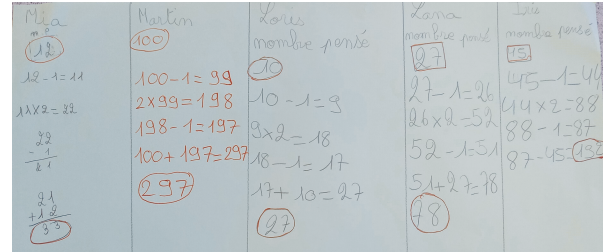 Mia
12
12-1=11
11×2=22
22
-1
21
21
+12
33
Martin
100
100-1=99
2×99=198
198-1=197
100+197=297
297
Loris
nombre pensé
10
10-1=9
9×2=18
18-1=17
17+10=27
27
Lana
nombre pensé
27
27-1=26
26×2=52
52-1=51
51+27=78
78
nombre pensé
45-1=44
44×2=88
88-1=87
87-45=132